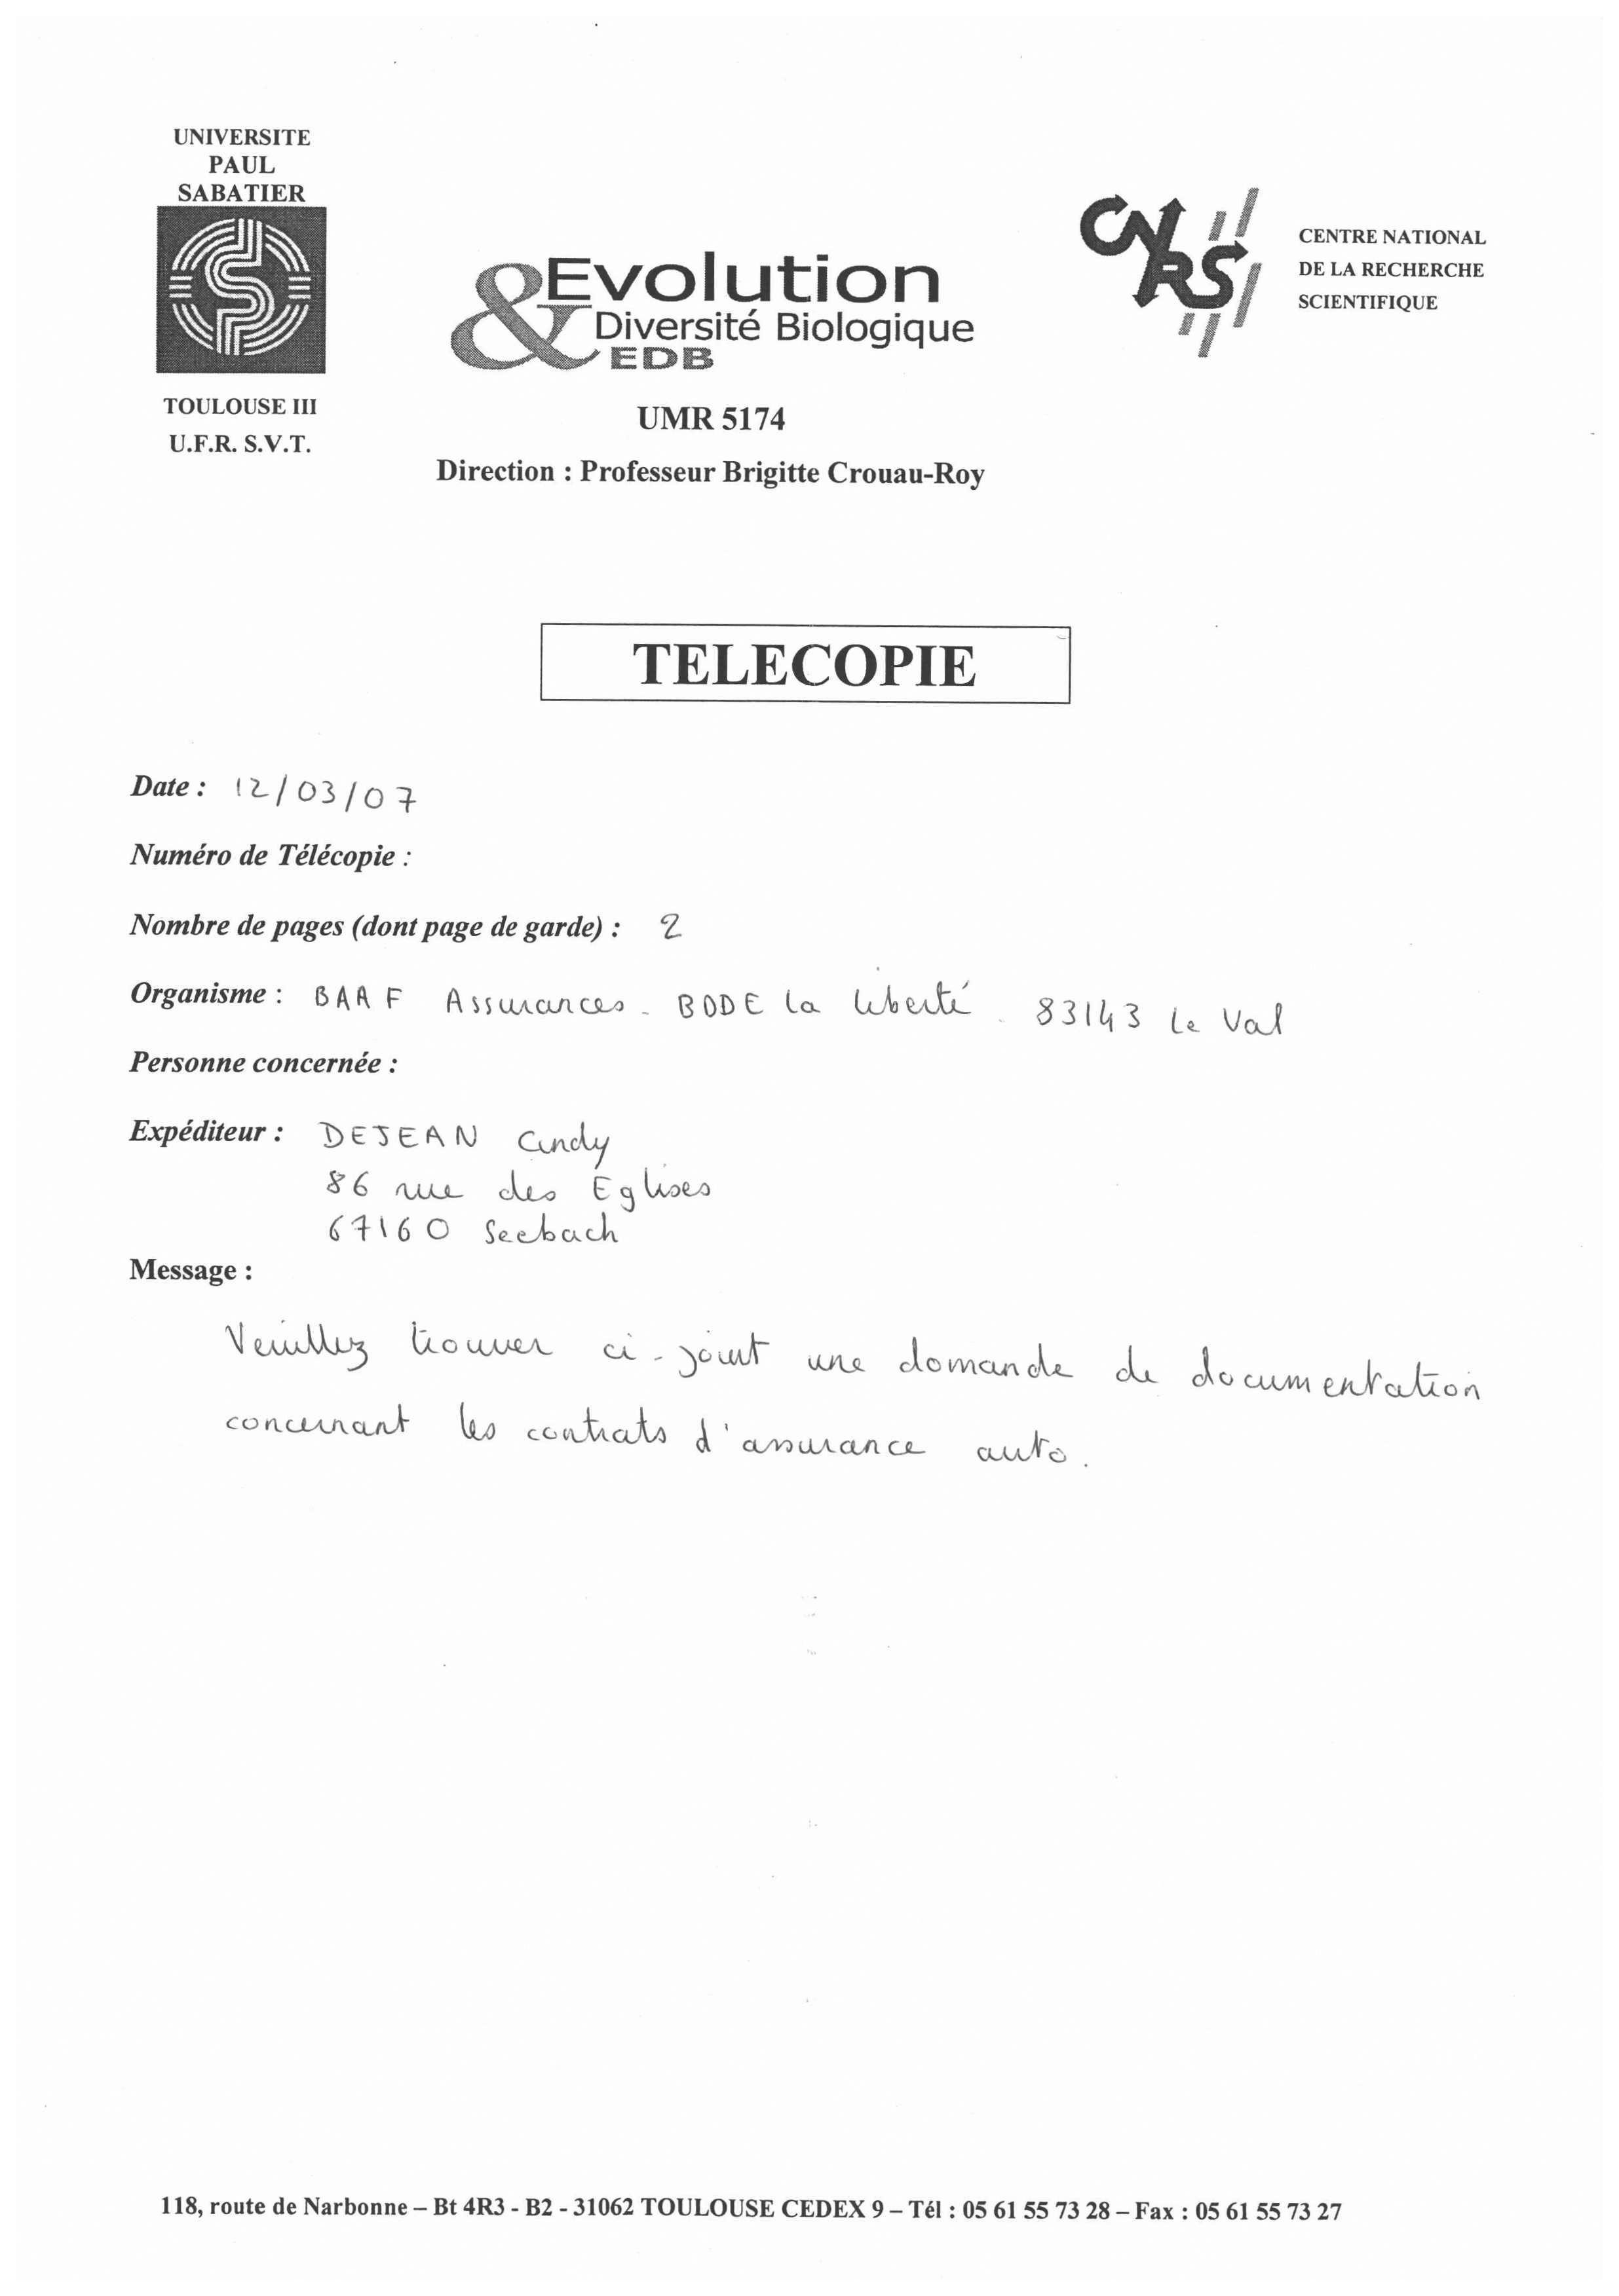 UNIVERSITE
PAUL
SABATIER
TOULOUSE III
U.F.R. S.V.T.
&Evolution
Diversité Biologique
EDB
UMR 5174
Direction : Professeur Brigitte Crouau-Roy
CNRS
CENTRE NATIONAL
DE LA RECHERCHE
SCIENTIFIQUE
TELECOPIE
Date : 12/03/07
Numéro de Télécopie :
Nombre de pages (dont page de garde) : 2
Organisme : BAAF Assurances - BODE la liberté - 83143 Le Val
Personne concernée :
Expéditeur : DEJEAN Cindy
86 rue des Eglises
67160 Seebach
Message :
Veuillez trouver ci-joint une domande de documentation
concernant les contrats d'assurance auto.
118, route de Narbonne – Bt 4R3 - B2 - 31062 TOULOUSE CEDEX 9 – Tél : 05 61 55 73 28 – Fax : 05 61 55 73 27